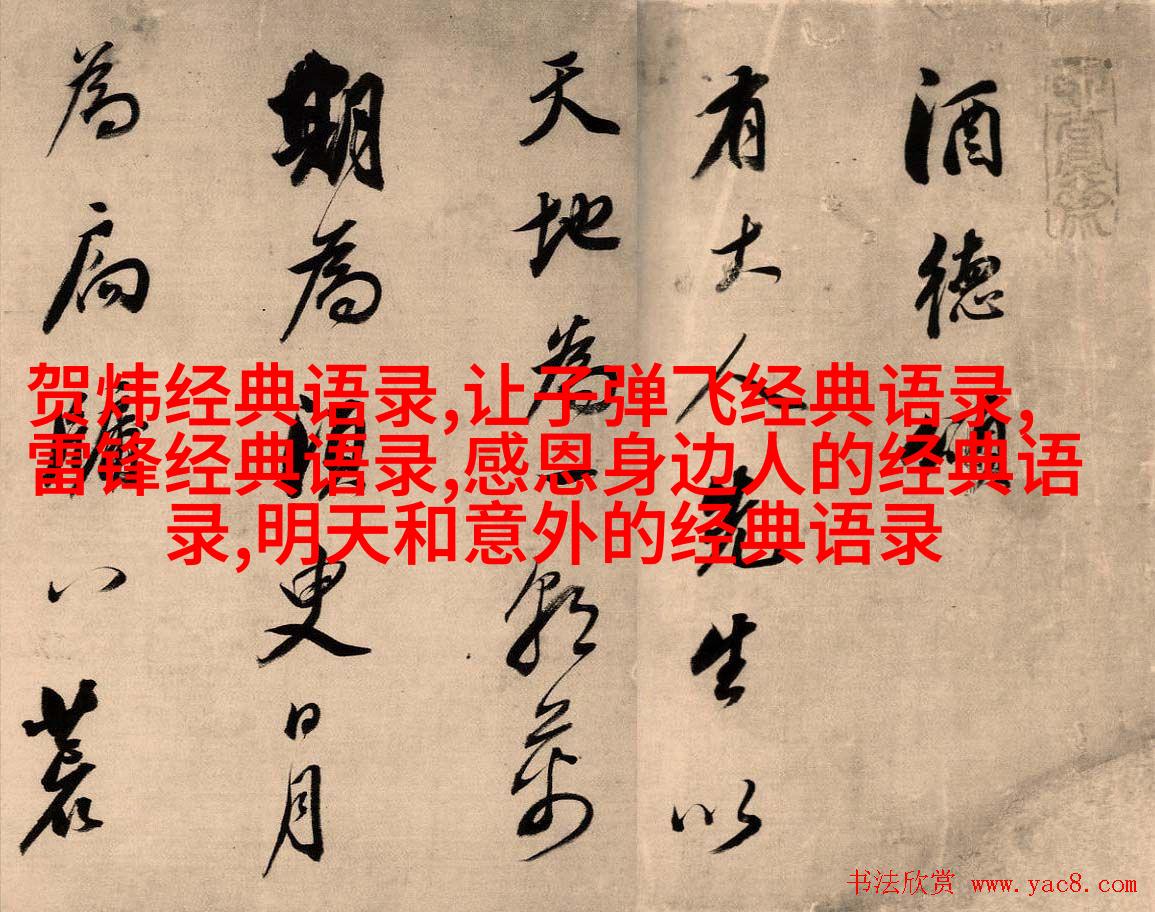 酒德頌
有大人先生以
天地為一朝萬
期為須臾日月
為扃牖八荒
贺炜经典语录,让子弹飞经典语录,
雷锋经典语录,感恩身边人的经典语
录,明天和意外的经典语录
书法欣赏 www.yac8.com